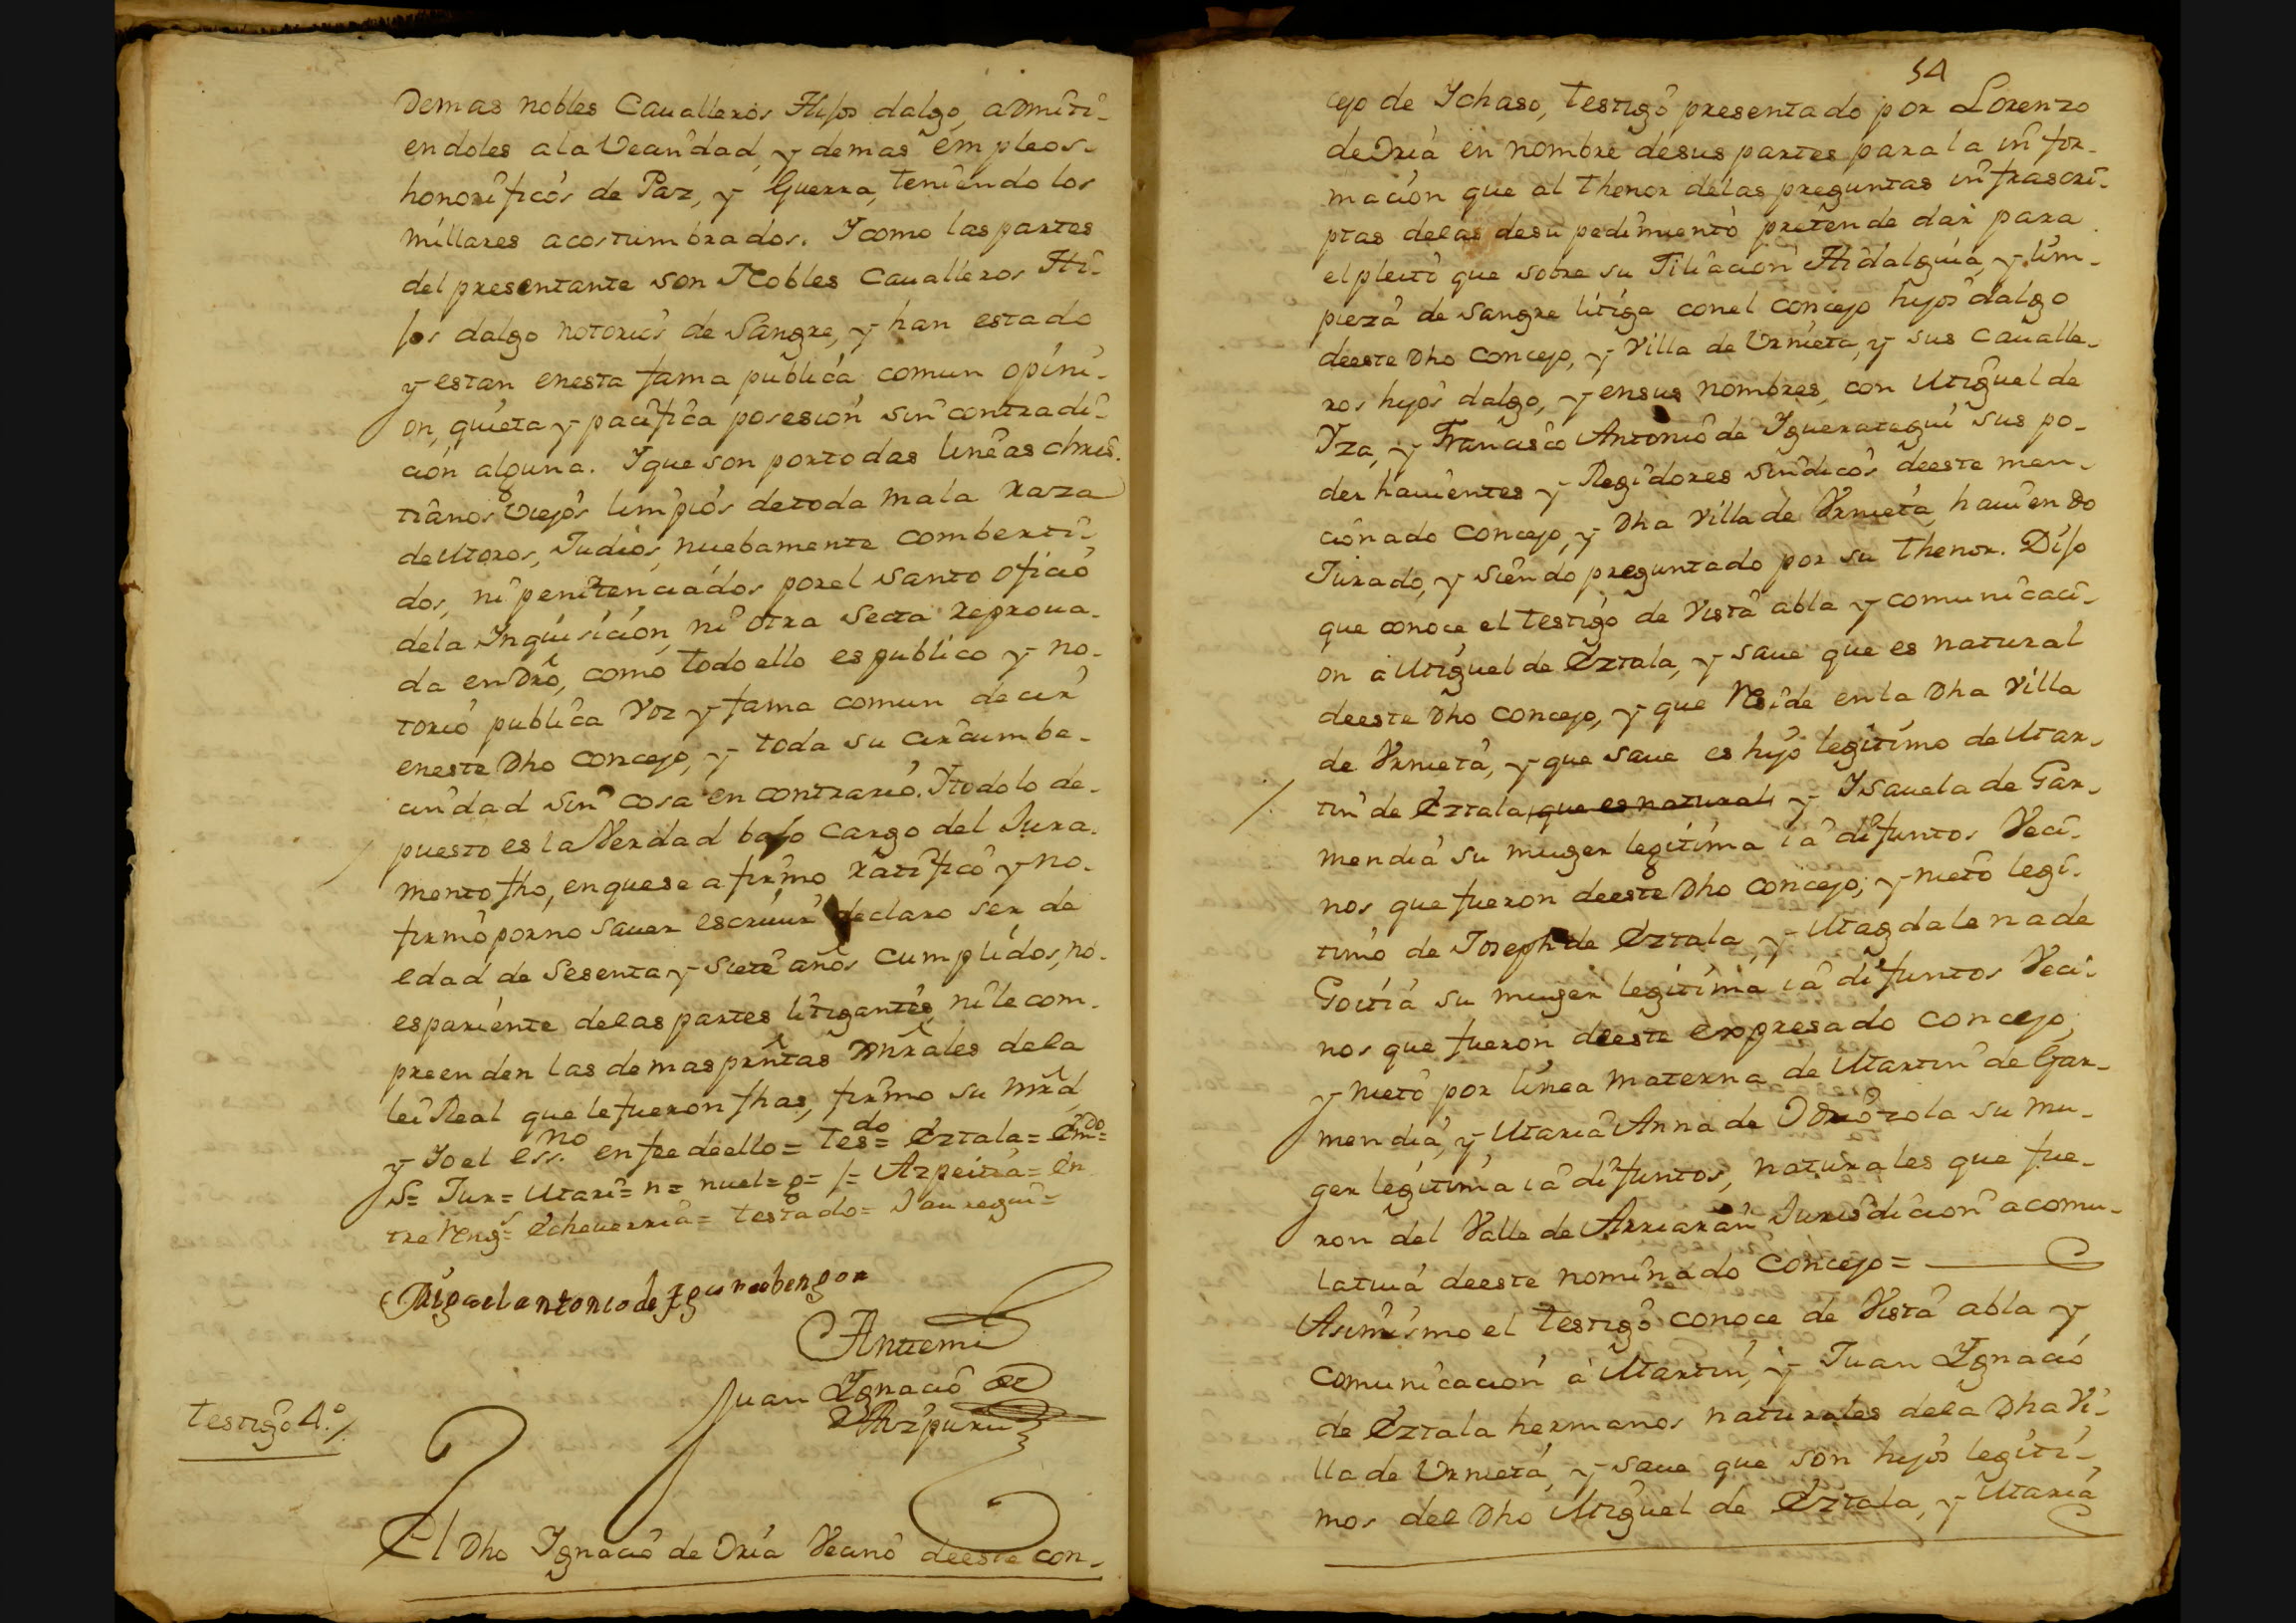 Demas nobles Caualleros Hijos dalgo, admiti-
endoles a la Vecindad, y demas empleos
honorificos de Paz, y Guerra, teniendo los
millares acostumbrados. Y como las partes
del presentante son Nobles Caualleros Hi-
jos dalgo notorios de Sangre, y han estado
y estan en esta fama publica comun opini-
on, quieta y pacifica posesion sin contradi-
cion alguna. Y que son por todas lineas chris-
tianos Viejos limpios de toda mala raza
de Moros, Judios, nuebamente comberti-
dos, ni penitenciados por el Santo oficio
de la Inquisicion, ni otra Secta reproua-
da en Dro, como todo ello es publico y no-
torio publica Voz y fama comun decir
en este Dho Concejo, y toda su circumbe-
cindad sin cosa en contrario. Y todo lo de-
puesto es la Verdad bajo cargo del Jura-
mento fho, en que se afirmo ratifico y no
firmó por no sauer escriuir declaro ser de
edad de Sesenta y Siete años cumplidos, no
es pariente de las partes litigantes, ni le com-
preenden las demas prñtas Gnrales de la
lei Real que le fueron fhas, firmo su mrd,
y Yo el essno. en fee de ello = tesdo = Eztala = Emdo =
S = Jur = Mari = n = nuel = o = j = Azpeitia = En
tre Reng.s = Echeuerria = testado = Jauregui =
Miguel antonio de Yguerabengoa
Anttemi
Juan Ygnacio de
Aizpuru
testigo 4.º/.
El Dho Ygnacio de Oria Vecino de este con-
54
cejo de Ychaso, testigo presentado por Lorenzo
de Oria en nombre de sus partes para la infor-
macion que al thenor de las preguntas infrascri-
ptas de las de su pedimiento pretende dar para
el pleito que sobre su Filiacion Hidalguia, y lim-
pieza de Sangre litiga con el concejo hijos dalgo
de este Dho Concejo, y Villa de Urnieta, y sus Caualle-
ros hijos dalgo, y en sus nombres, con Miguel de
Yza, y Francisco Antonio de Yguerategui sus po-
der hauientes y Regidores sindicos de este men-
cionado Concejo, y Dha Villa de Urnieta, hauiendo
Jurado, y siendo preguntado por su thenor. Dijo
que conoce el testigo de Vista abla y comunicaci-
on a Miguel de Eztala, y saue que es natural
de este Dho concejo, y que Reside en la Dha Villa
de Urnieta, y que saue es hijo legitimo de Mar-
/. tin de Eztala, que es natural, y Ysauela de Gar-
mendia su muger legitima ia difuntos Veci-
nos que fueron de este Dho Concejo; y nieto legi-
timo de Joseph de Eztala, y Magdalena de
Goitia su muger legitima ia difuntos Veci-
nos que fueron de este expresado concejo,
y nieto por linea materna de Martin de Gar-
mendia, y Maria Anna de Odriozola su mu-
ger legitima ia difuntos, naturales que fue-
ron del Valle de Arriaran Jurisdicion acomu-
latiua de este nominado Concejo =
Asimismo el testigo conoce de Vista abla y
comunicacion a Martin, y Juan Ygnacio
de Eztala hermanos naturales de la Dha Vi-
lla de Urnieta, y saue que son hijos legiti-
mos del Dho Miguel de Eztala, y Maria